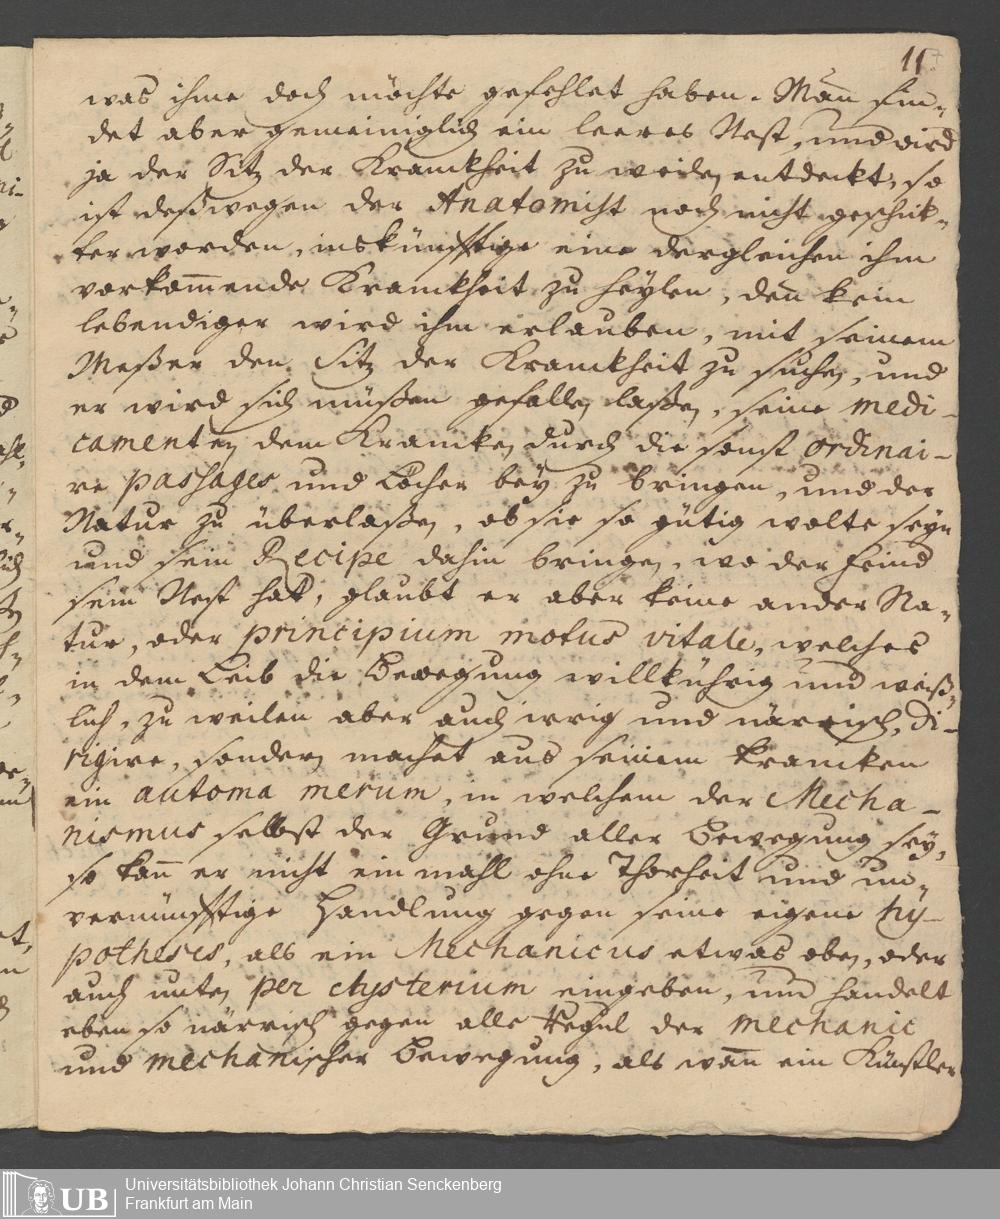 11
was ihme doch möchte gefehlet haben. Man fin-
det aber gemeiniglich ein leeres Nest, und wird
ja der Sitz der Kranckheit zu weilen entdeckt, so
ist deßwegen der Anatomist noch nicht geschick-
ter worden, inskünfftige eine dergleichen ihm
vorkom̄ende Kranckheit zu heylen, den̄ kein
lebendiger wird ihm erlauben, mit seinem
Meßer den Sitz der Kranckheit zu suchen, und
er wird sich müßen gefallen laßen, seine medi-
camenten dem Krancken durch die sonst ordinai-
re passages und Löcher bey zu bringen, und der
Natur zu überlaßen, ob sie so gütig wolte seyn
und sein Recipe dahin bringen, wo der Feind
sein Nest hat, glaubt er aber keine ander Na-
tur, oder principium motus vitale, welches
in dem Leib die Bewegung willkührig und weiß-
lich, zu weilen aber auch irrig und närrisch, di-
rigire, sondern machet aus seinem krancken
ein automa merum, in welchem der Mecha-
nismus selbst der Grund aller Bewegung sey,
so kan̄ er nicht ein mahl ohne Thorheit und un-
vernünfftige Handlung gegen seine eigene hy-
potheses, als ein Mechanicus etwas oben, oder
auch unten per clysterium eingeben, und handelt
eben so närrisch gegen alle Regul der mechanic
und mechanischer Bewegung, als wan̄ ein Künstler
UB
Universitätsbibliothek Johann Christian Senckenberg
Frankfurt am Main